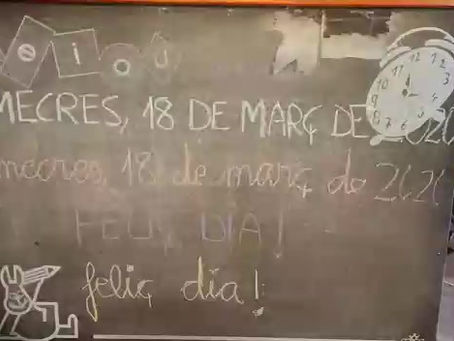 e i o u
MECRES, 18 DE MARÇ DE 2020
mecres, 18 de març de 2020
FELIÇ DIA!
feliç dia!